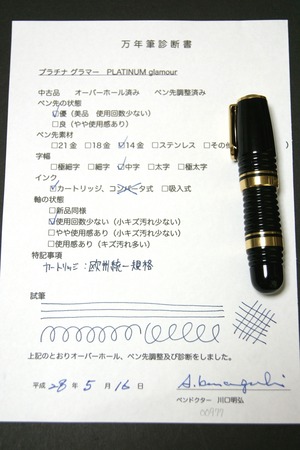 万年筆診断書
プラチナ グラマー PLATINUM glamour
中古品 オーバーホール済み ペン先調整済み
ペン先の状態
☑優（美品 使用回数少ない）
□良（やや使用感あり）
ペン先素材
□21金 □18金 ☑14金 □ステンレス □その他
字幅
□極細字 □細字 ☑中字 □太字 □極太字
インク
☑カートリッジ、コンバータ式 □吸入式
軸の状態
□新品同様
☑使用回数少ない（小キズ汚れ少ない）
□やや使用感あり（小キズ汚れ少ない）
□使用感あり（キズ汚れ多い）
特記事項
カートリッジ：欧州統一規格
試筆
上記のとおりオーバーホール、ペン先調整及び診断をしました。
平成 28 年 5 月 16 日
ペンドクター 川口明弘
00977